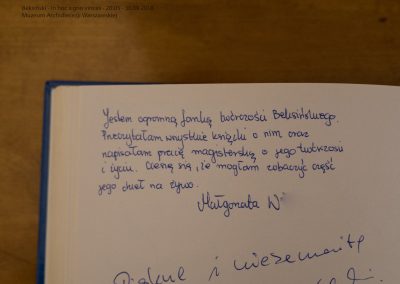 Beksiński - In hoc signo vinces - 20.05 - 30.09.2018
Muzeum Archidiecezji Warszawskiej
Jestem ogromną fanką twórczości Beksińskiego.
Przeczytałam wszystkie książki o nim oraz
napisałam pracę magisterską o jego twórczości
i życiu. Cieszę się, że mogłam zobaczyć część
jego dzieł na żywo.
Małgorzata W
Piękne i niesamowite